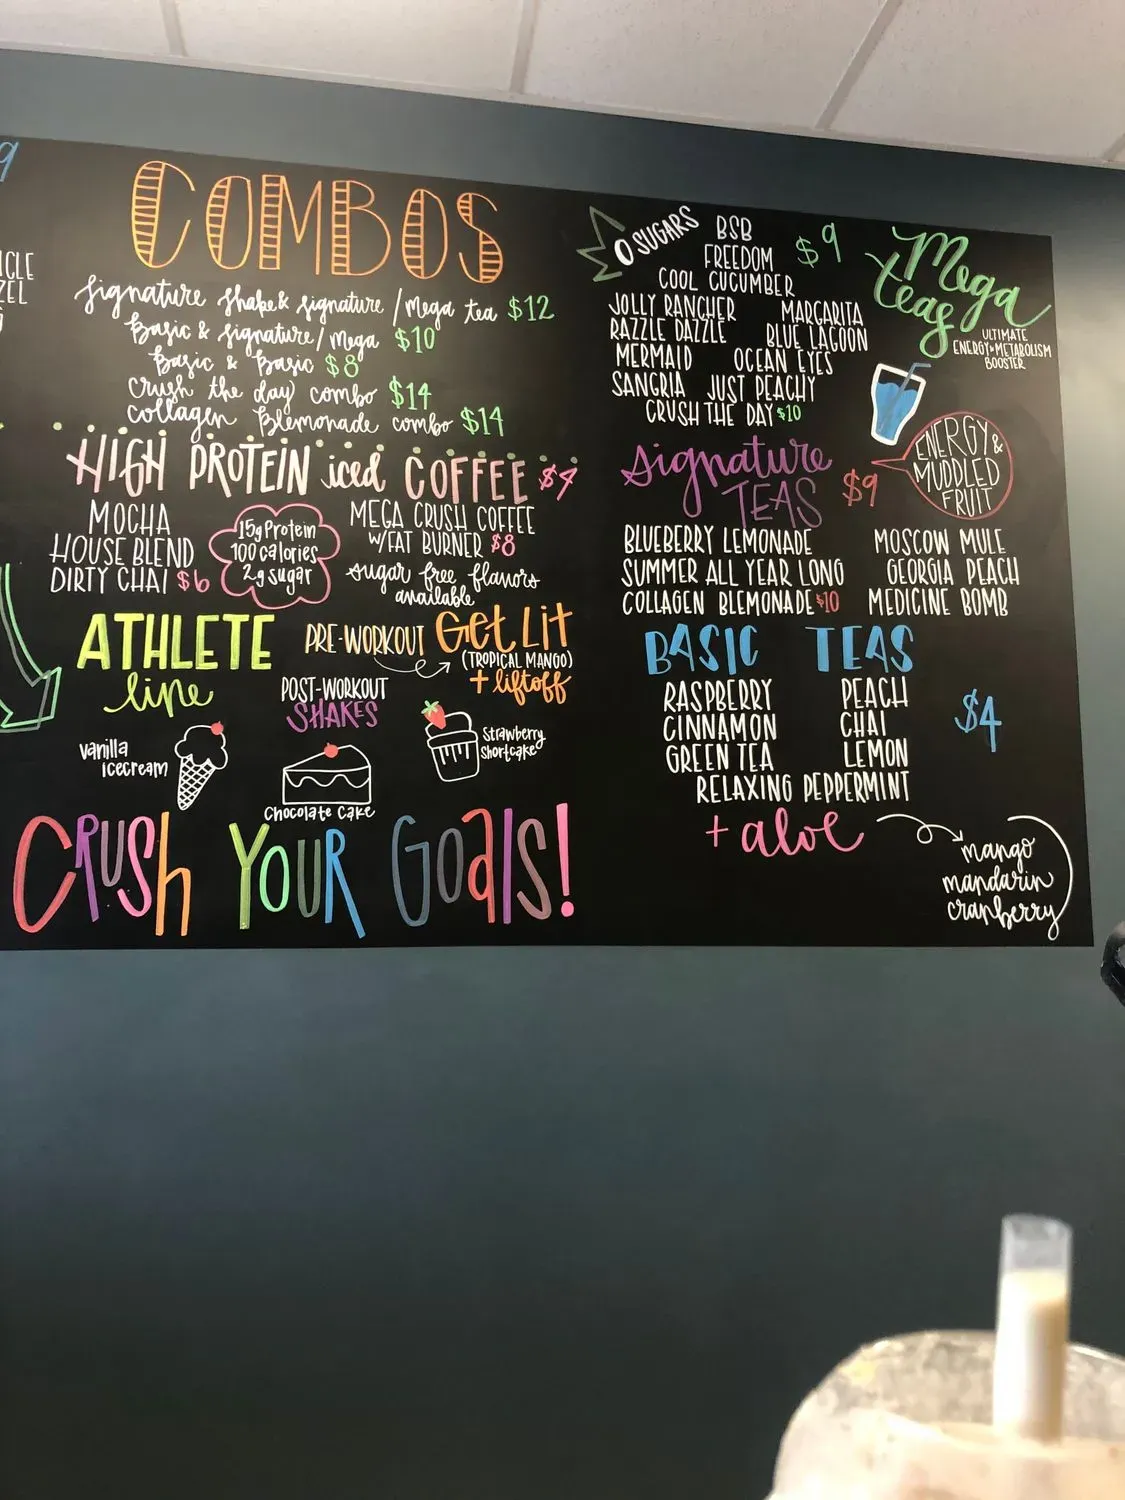 9
ICLE
ZEL
COMBOS
Signature Shake & Signature / Mega tea $12
Basic & Signature / Mega $10
Basic & Basic $8
Crush the day combo $14
Collagen Blemonade combo $14
HIGH PROTEIN iced COFFEE $4
MOCHA
HOUSE BLEND
DIRTY CHAI $6
15g Protein
100 calories
2g sugar
MEGA CRUSH COFFEE
W/FAT BURNER $8
sugar free flavors
available
ATHLETE
line
PRE-WORKOUT GET LIT
(TROPICAL MANGO)
+ liftoff
POST-WORKOUT
SHAKES
vanilla
icecream
Chocolate Cake
Strawberry
Shortcake
CRUSH YOUR GOALS!
0 SUGARS
BSB
FREEDOM
COOL CUCUMBER
$9
Mega
teas
ULTIMATE
ENERGY & METABOLISM
BOOSTER
JOLLY RANCHER MARGARITA
RAZZLE DAZZLE BLUE LAGOON
MERMAID OCEAN EYES
SANGRIA JUST PEACHY
CRUSH THE DAY $10
Signature
TEAS
$9
ENERGY &
MUDDLED
FRUIT
BLUEBERRY LEMONADE MOSCOW MULE
SUMMER ALL YEAR LONG GEORGIA PEACH
COLLAGEN BLEMONADE $10 MEDICINE BOMB
BASIC TEAS
RASPBERRY PEACH
CINNAMON CHAI
GREEN TEA LEMON
RELAXING PEPPERMINT
$4
+ aloe
mango
mandarin
cranberry